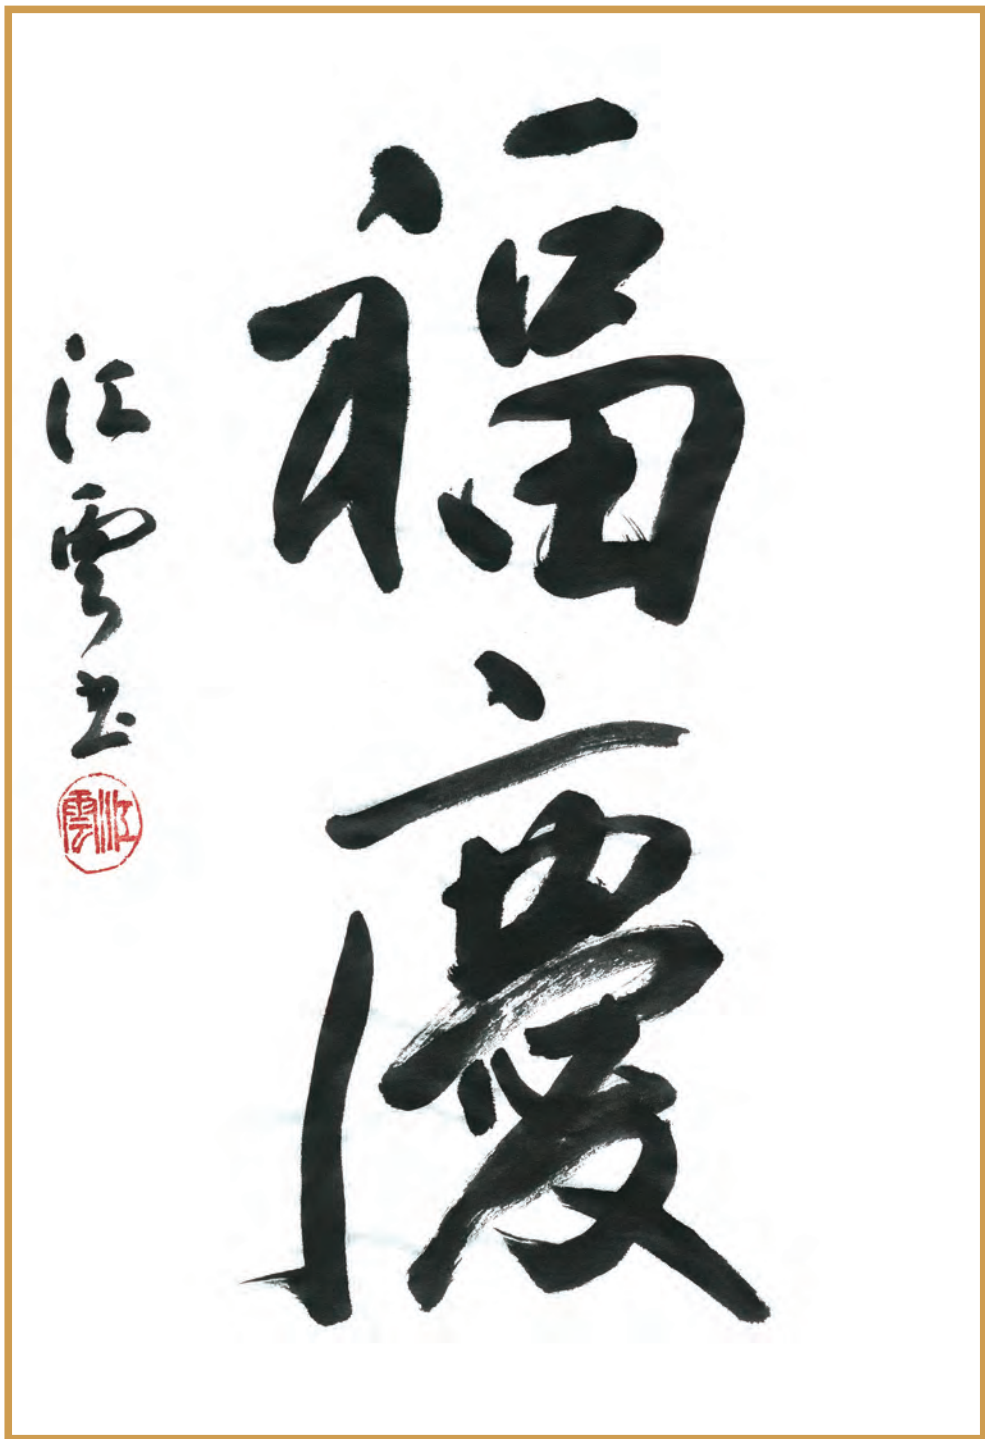 福慶
江雲书
江雲